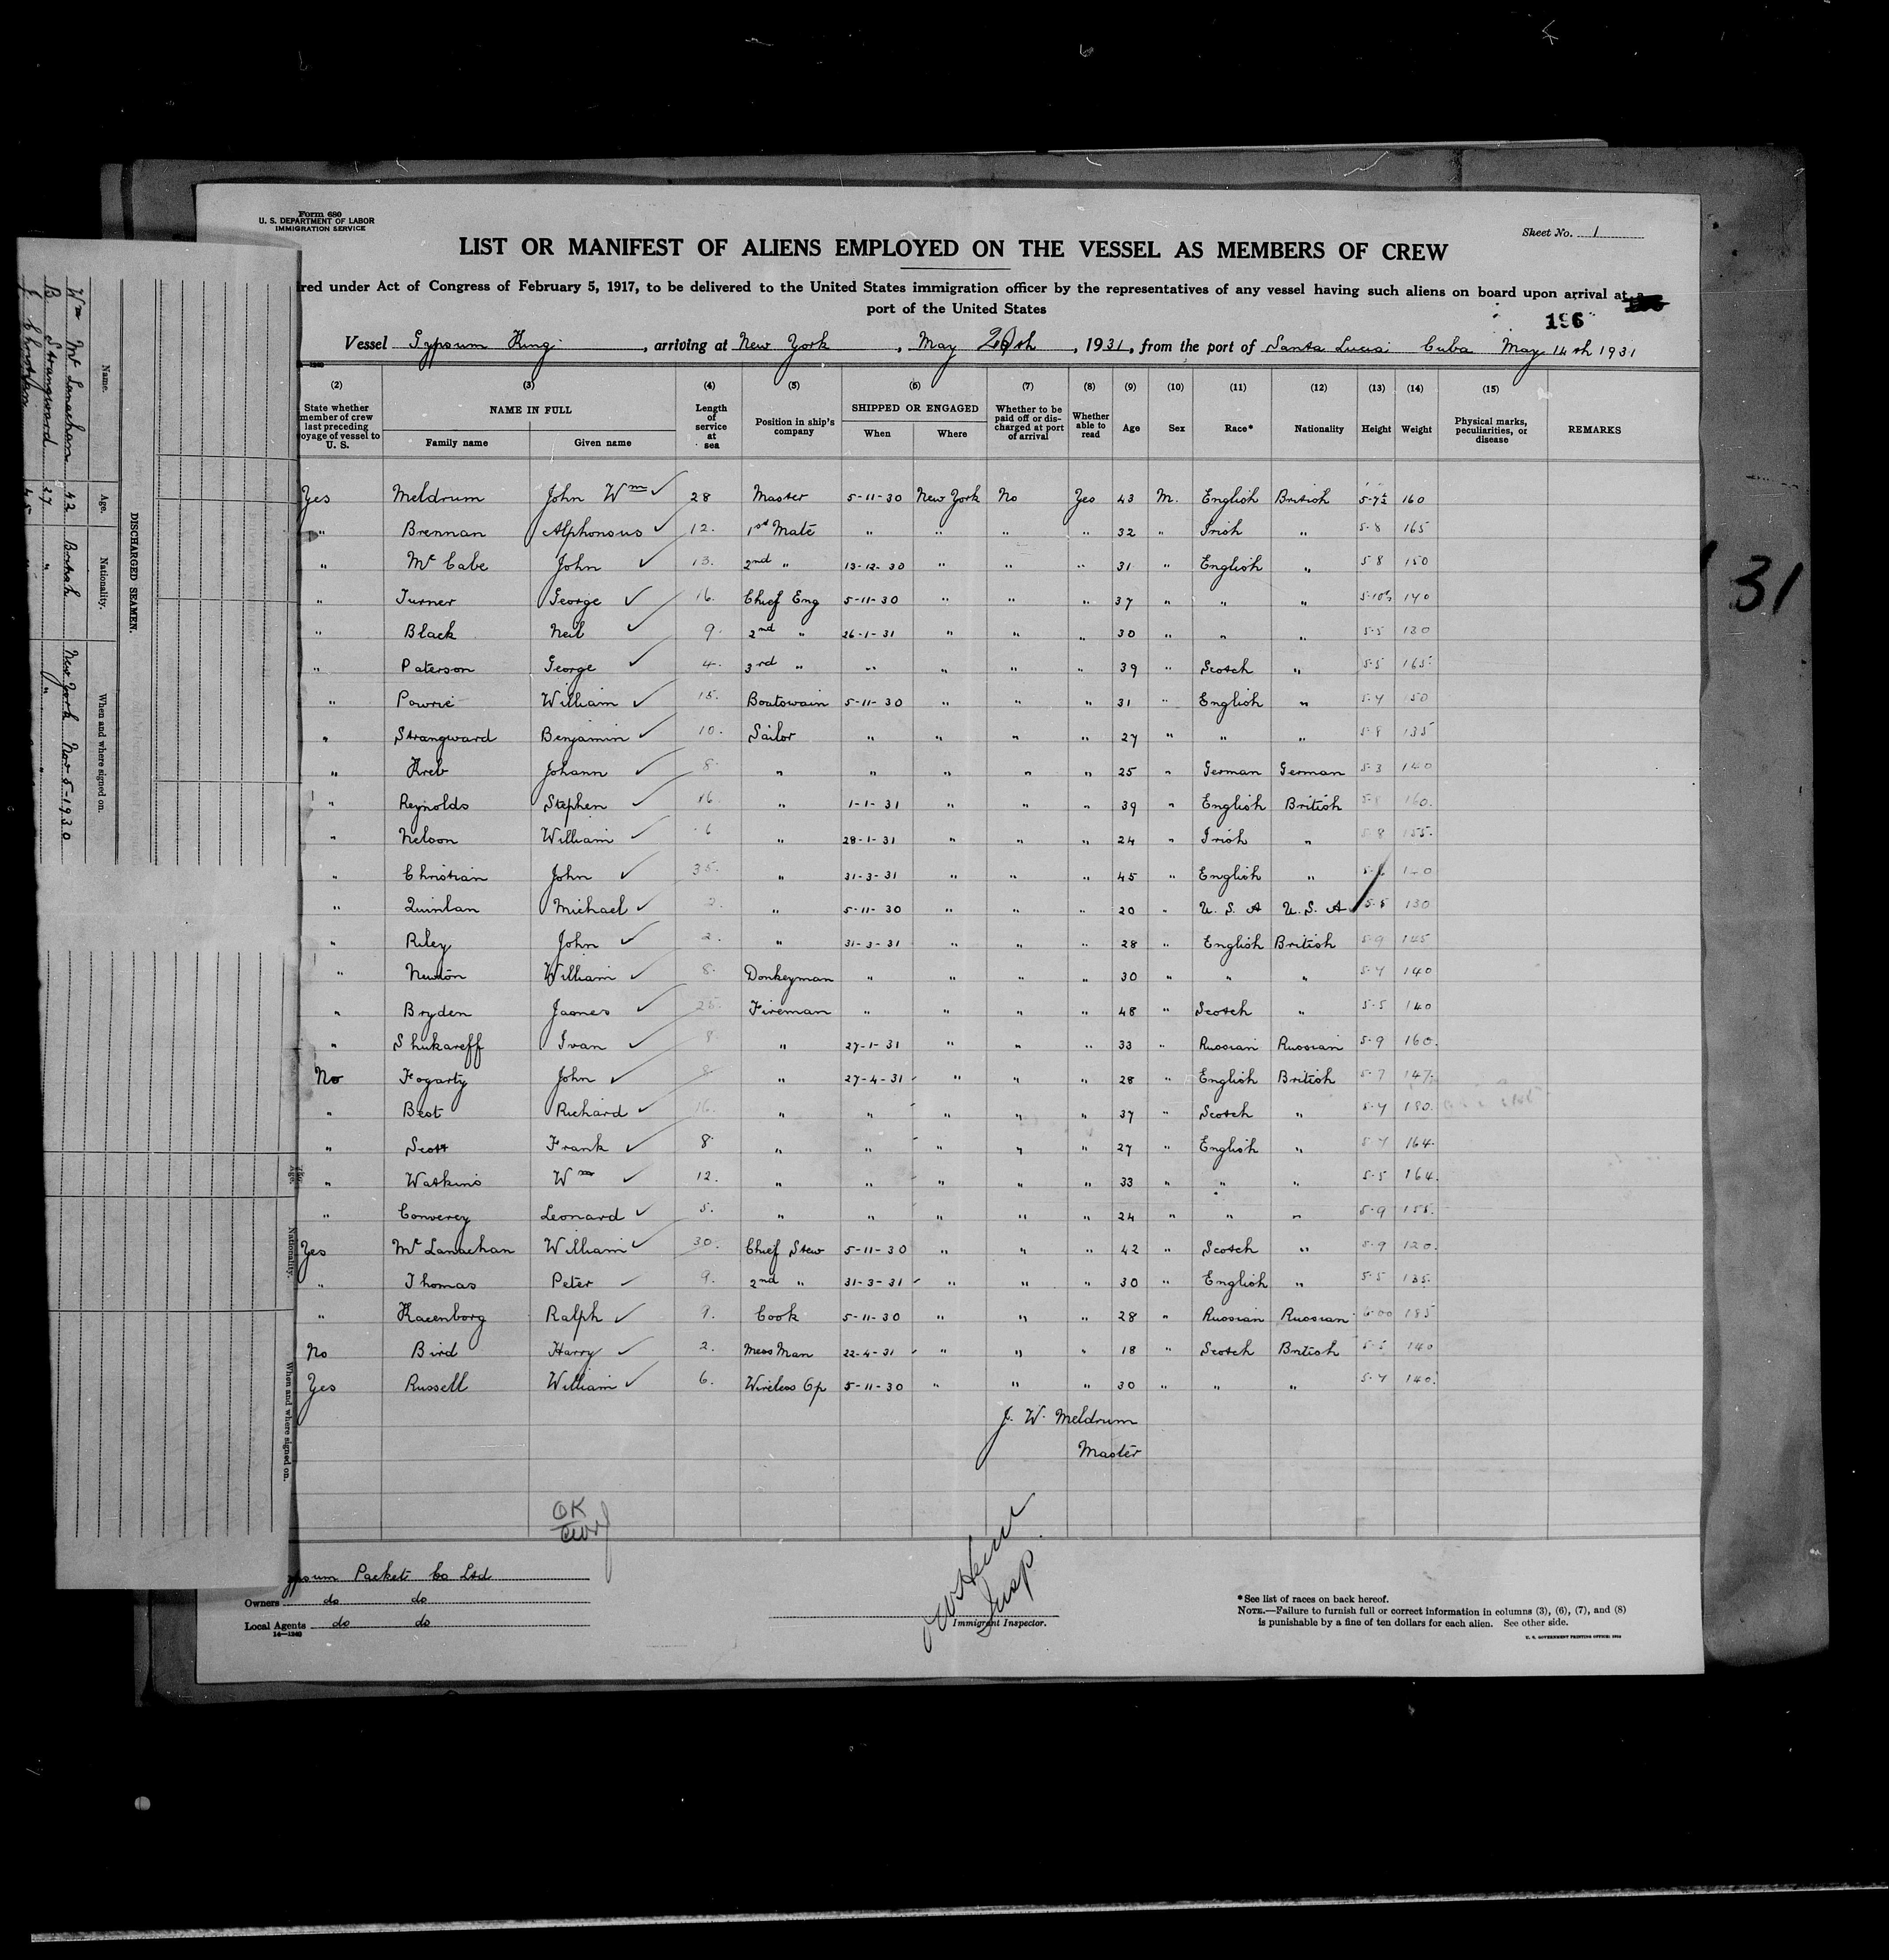 Form 680
U. S. DEPARTMENT OF LABOR
IMMIGRATION SERVICE
Sheet No. 1
LIST OR MANIFEST OF ALIENS EMPLOYED ON THE VESSEL AS MEMBERS OF CREW
red under Act of Congress of February 5, 1917, to be delivered to the United States immigration officer by the representatives of any vessel having such aliens on board upon arrival at a
port of the United States
196
Vessel Gypsum King, arriving at New York, May 20th, 1931, from the port of Santa Lucia Cuba May 14th 1931
(2) (3) (4) (5) (6) (7) (8) (9) (10) (11) (12) (13) (14) (15)
State whether member of crew last preceding voyage of vessel to U. S. NAME IN FULL Family name Given name Length of service at sea Position in ship's company SHIPPED OR ENGAGED When Where Whether to be paid off or discharged at port of arrival Whether able to read Age Sex Race* Nationality Height Weight Physical marks, peculiarities, or disease REMARKS
Yes Meldrum John Wm 28 Master 5-11-30 New York No Yes 43 M. English British 5-7½ 160
" Brennan Alphonsus 12. 1st Mate " " " " 32 " Irish " 5-8 165
" Mc Cabe John 13. 2nd " 13-12-30 " " " 31 " English " 5 8 150
" Turner George 16. Chief Eng 5-11-30 " " " 37 " " " 140
" Black Neil 9. 2nd " 26-1-31 " " " 30 " " " 5-5 130
" Paterson George 4. 3rd " " " " " 39 " Scotch " 5-5 165
" Powrie William 15. Boatswain 5-11-30 " " " 31 " English " 5-4 150
" Strangward Benjamin 10. Sailor " " " " 27 " " " 5-8 135
" Kreb Johann 8. " " " " " 25 " German German 5-3 140
" Reynolds Stephen 16. " 1-1-31 " " " 39 " English British 5-8 160.
" Nelson William 6 " 28-1-31 " " " 24 " Irish " 5 8 155.
" Christian John 35. " 31-3-31 " " " 45 " English "
" Quinlan Michael 2. " 5-11-30 " " " 20 " U. S. A U. S. A 5-8 130
" Riley John 2. " 31-3-31 " " " 28 " English British 5-9 145
" Newton William 8. Donkeyman " " " " 30 " " " 5-4 140
" Bryden James 25. Fireman " " " " 48 " Scotch " 5-5 140
" Shukareff Ivan 8. " 27-1-31 " " " 33 " Russian Russian 5-9 160.
No Fogarty John 8 " 27-4-31 " " " 28 " English British 5-7 147.
" Best Richard 16. " " " " " 37 " Scotch " 5-4 130.
" Scott Frank 8 " " " " " 27 " English " 5-4 164.
" Watkins Wm 12. " " " " " 33 " " " 5-5 164.
" Converey Leonard 5. " " " " " 24 " " " 5-9 155.
Yes Mc Lanachan William 30. Chief Stew 5-11-30 " " " 42 " Scotch " 5-9 120.
" Thomas Peter 9. 2nd " 31-3-31 " " " 30 " English " 5-5 135.
" Kacenborg Ralph 9. Cook 5-11-30 " " " 28 " Russian Russian 6-00 185
No Bird Harry 2. Mess Man 22-4-31 " " " 18 " Scotch British 5-5 140
Yes Russell William 6. Wireless Op 5-11-30 " " " 30 " " " 5-4 140.
J. W. Meldrum
Master
OK
Packet Co Ltd
Owners do do
Local Agents do do
14-1240
Insp
Immigrant Inspector.
*See list of races on back hereof.
NOTE.—Failure to furnish full or correct information in columns (3), (6), (7), and (8)
is punishable by a fine of ten dollars for each alien. See other side.
U. S. GOVERNMENT PRINTING OFFICE
31
DISCHARGED SEAMEN.
Name. Age. Nationality. When and where signed on.
Wm Mc Lanachan 42 British New York Nov 5-1930
B Strangward 27 " "
J Christian 45
Age. Nationality. When and where signed on.